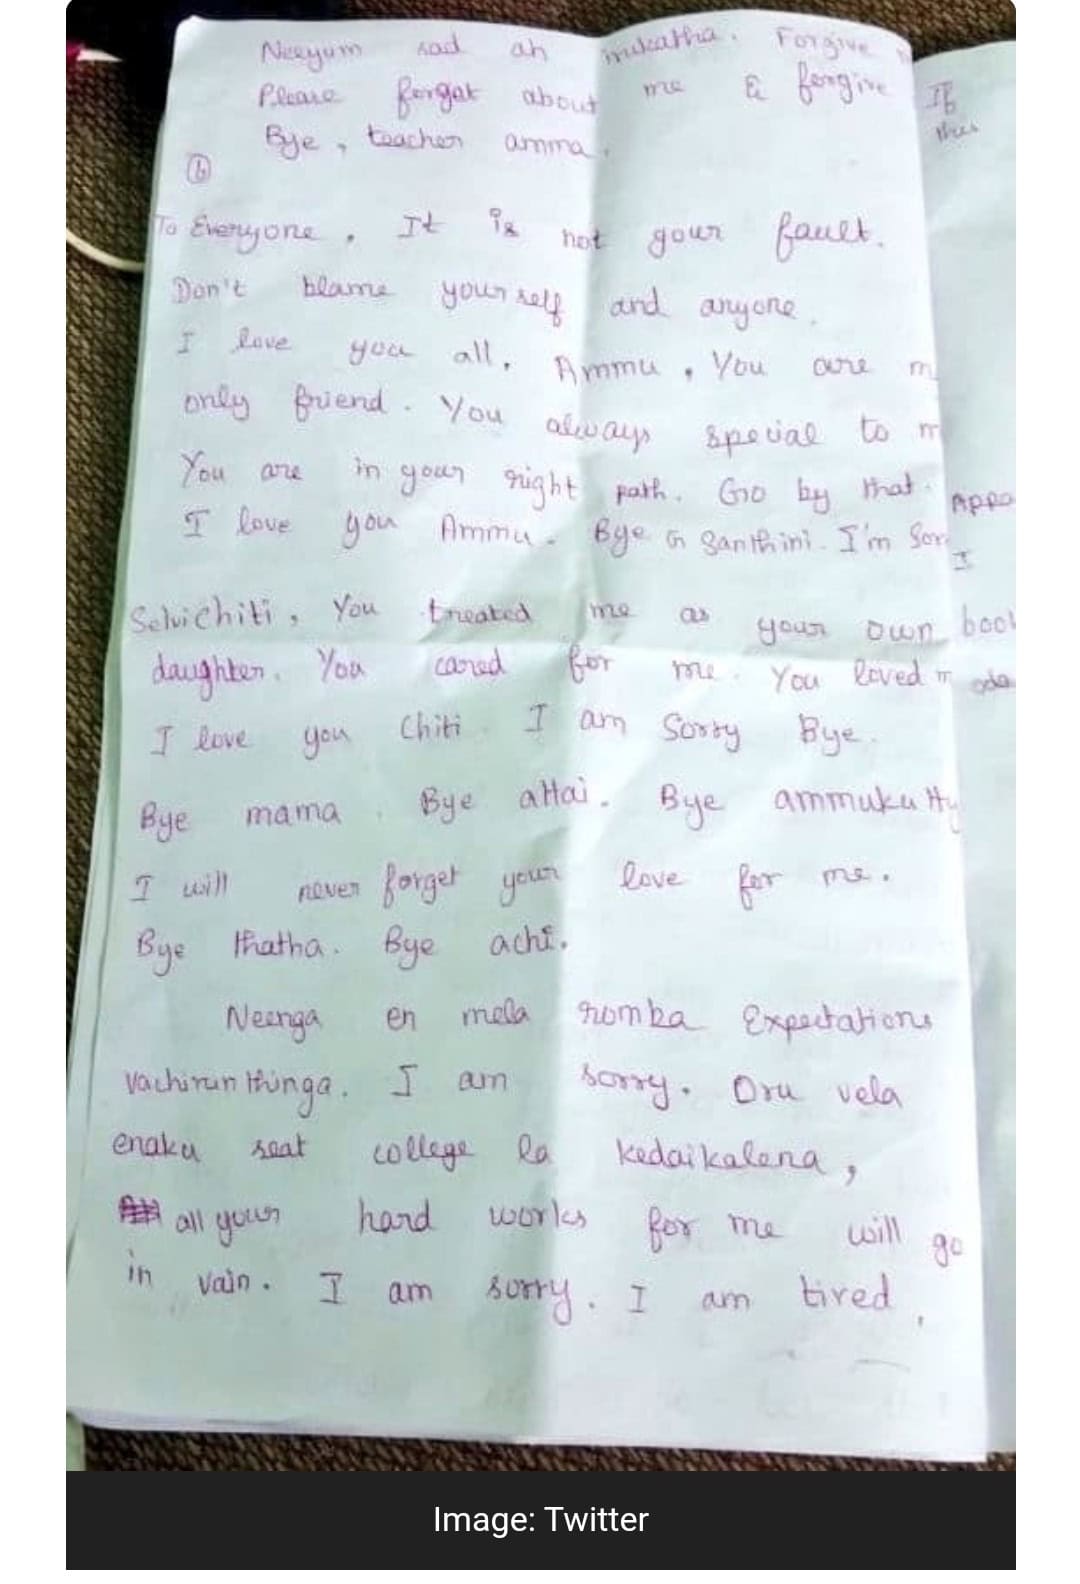 Neeyum sad ah irukatha. Forgive
Please forget about me & forgive
Bye, teacher amma.
6
To Everyone. It is not your fault.
Don't blame yourself and anyone.
I love you all. Ammu, You are
only friend. You always special to
You are in your right path. Go by that.
I love you Ammu. Bye G Santhini. I'm
Selvi Chiti, You treated me as your own
daughter. You cared for me. You loved
I love you Chiti. I am Sorry Bye.
Bye mama. Bye attai. Bye ammukutty
I will never forget your love for me.
Bye thatha. Bye achi.
Neenga en mela romba Expectations
vachirunthinga. I am sorry. Oru vela
enaku seat college la kedaikalena,
all your hard works for me will go
in vain. I am sorry. I am tired.
If
I
Image: Twitter